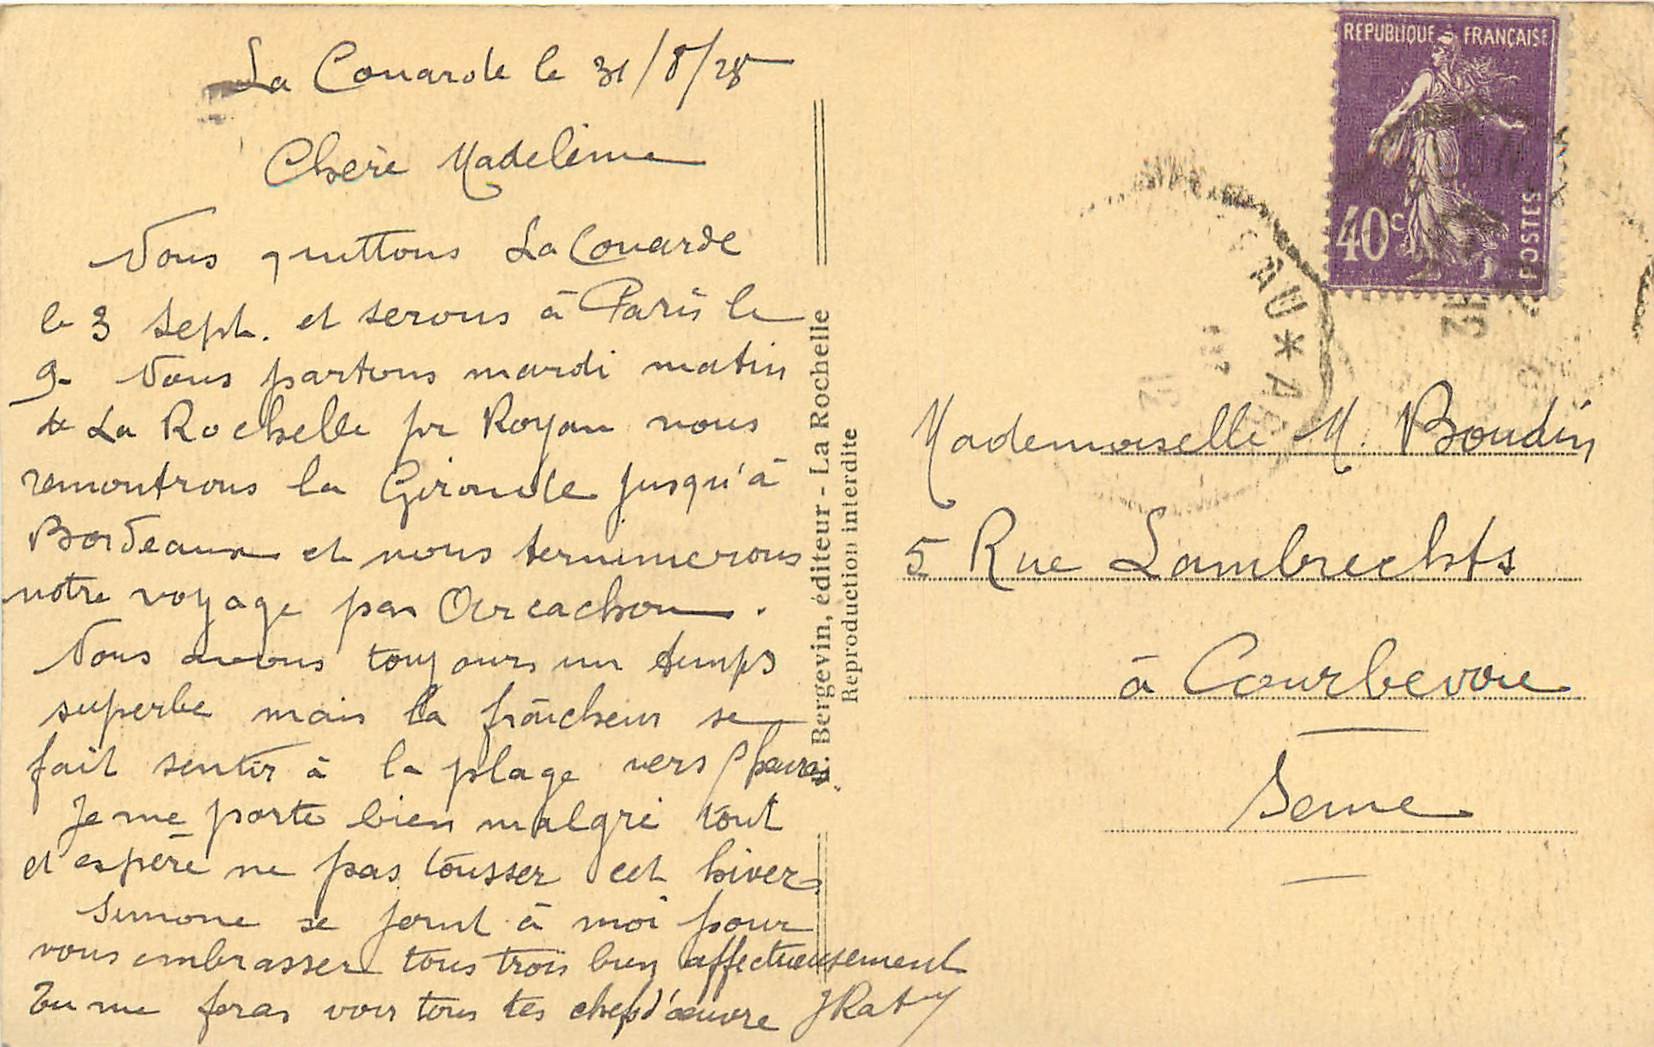 La Couarde le 31/8/28
Chère Madeleine
Nous quittons La Couarde
le 3 sept. et serons à Paris le
9. Nous partons mardi matin
de La Rochelle pr Royan nous
remontrons la Gironde jusqu'à
Bordeaux et nous terminerons
notre voyage par Arcachon.
Nous avons toujours un temps
superbe mais la fraîcheur se
fait sentir à la plage vers heures.
Je me porte bien malgré tout
et espère ne pas tousser cet hiver.
Simone se joint à moi pour
vous embrasser tous trois bien affectueusement
Tu me feras voir tous tes chefs d'œuvre JRaty
Bergevin, éditeur - La Rochelle
Reproduction interdite
REPUBLIQUE FRANÇAISE
40c
POSTES
Mademoiselle M. Boudin
5 Rue Lambrechts
à Courbevoie
Seine